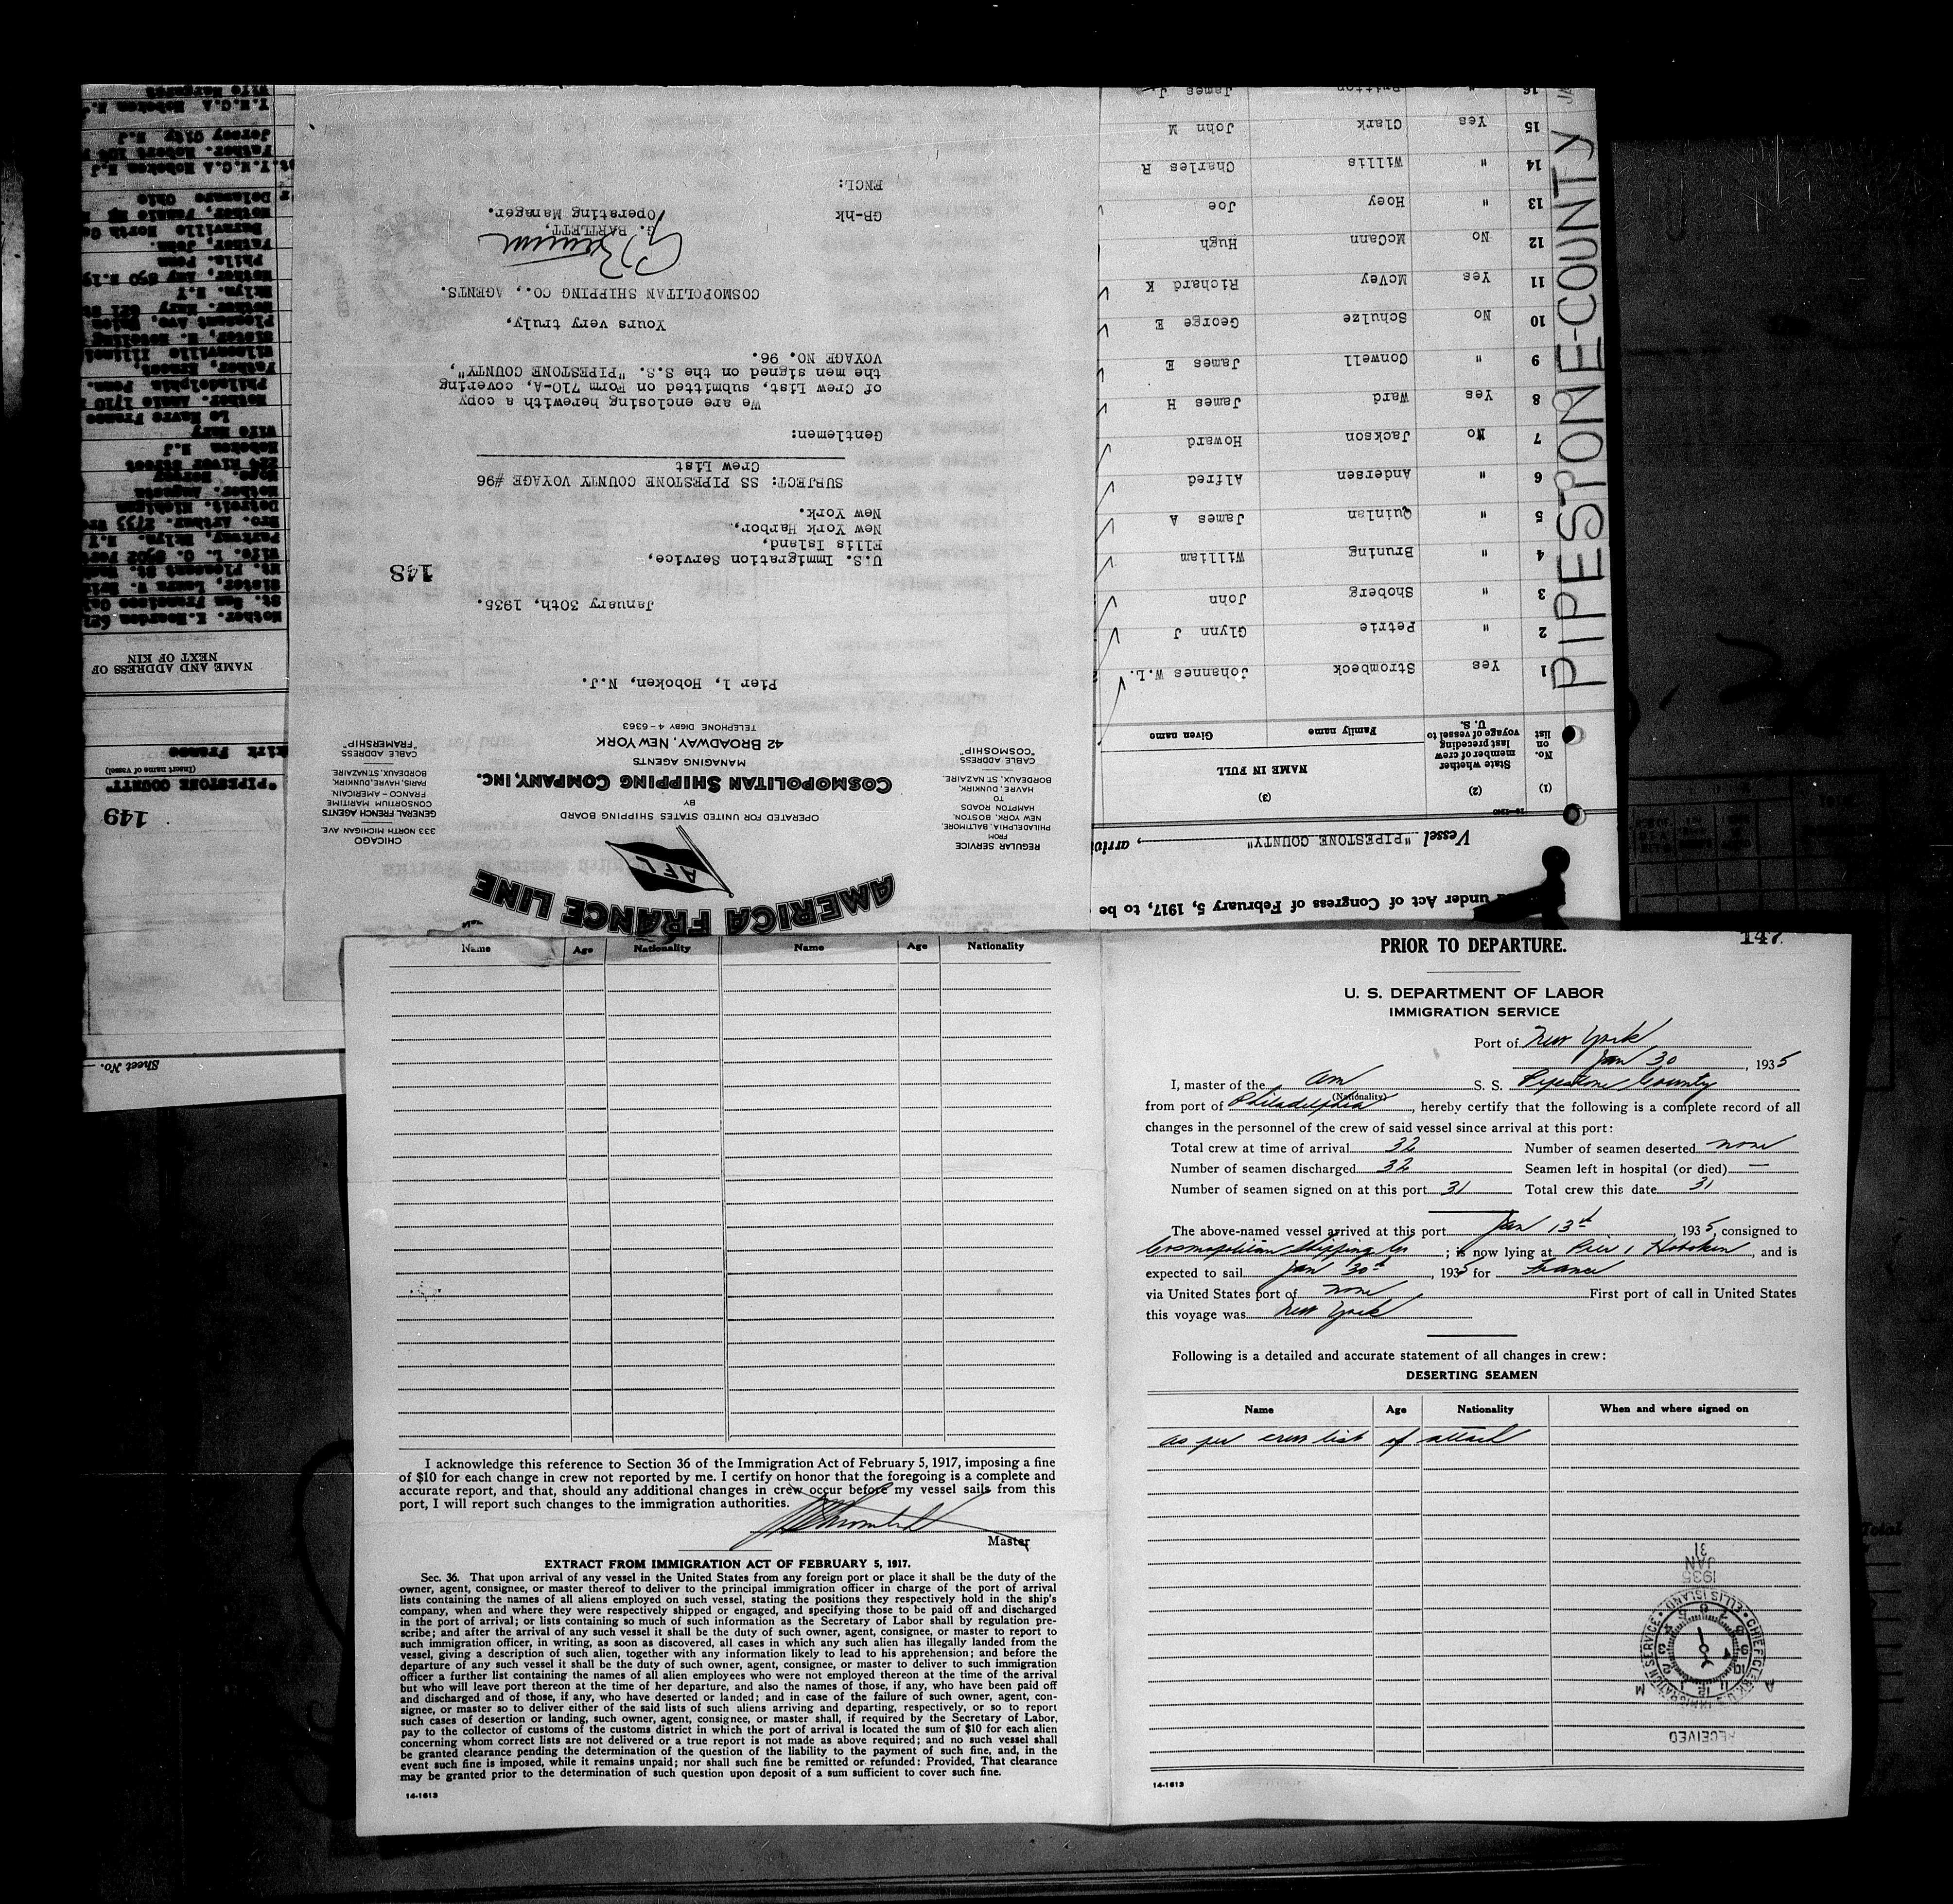 147
PRIOR TO DEPARTURE.
U. S. DEPARTMENT OF LABOR
IMMIGRATION SERVICE
Port of New York
Jan 30, 1935
I, master of the Am S. S. Pipestone County
(Nationality)
from port of Philadelphia, hereby certify that the following is a complete record of all
changes in the personnel of the crew of said vessel since arrival at this port:
Total crew at time of arrival 32 Number of seamen deserted none
Number of seamen discharged 32 Seamen left in hospital (or died) —
Number of seamen signed on at this port 31 Total crew this date 31
The above-named vessel arrived at this port Jan 13th, 1935, consigned to
Cosmopolitan Shipping Co; is now lying at Pier 1 Hoboken, and is
expected to sail Jan 30th, 1935 for France
via United States port of none First port of call in United States
this voyage was New York
Following is a detailed and accurate statement of all changes in crew:
DESERTING SEAMEN
Name Age Nationality When and where signed on
as per crew list of attach
RECEIVED
CHIEF CLERK U.S. IMMIGRATION SERVICE • ELLIS ISLAND •
A M
1935
JAN
31
14-1613
Name Age Nationality Name Age Nationality
I acknowledge this reference to Section 36 of the Immigration Act of February 5, 1917, imposing a fine
of $10 for each change in crew not reported by me. I certify on honor that the foregoing is a complete and
accurate report, and that, should any additional changes in crew occur before my vessel sails from this
port, I will report such changes to the immigration authorities.
Master
EXTRACT FROM IMMIGRATION ACT OF FEBRUARY 5, 1917.
Sec. 36. That upon arrival of any vessel in the United States from any foreign port or place it shall be the duty of the
owner, agent, consignee, or master thereof to deliver to the principal immigration officer in charge of the port of arrival
lists containing the names of all aliens employed on such vessel, stating the positions they respectively hold in the ship's
company, when and where they were respectively shipped or engaged, and specifying those to be paid off and discharged
in the port of arrival; or lists containing so much of such information as the Secretary of Labor shall by regulation pre-
scribe; and after the arrival of any such vessel it shall be the duty of such owner, agent, consignee, or master to report to
such immigration officer, in writing, as soon as discovered, all cases in which any such alien has illegally landed from the
vessel, giving a description of such alien, together with any information likely to lead to his apprehension; and before the
departure of any such vessel it shall be the duty of such owner, agent, consignee, or master to deliver to such immigration
officer a further list containing the names of all alien employees who were not employed thereon at the time of the arrival
but who will leave port thereon at the time of her departure, and also the names of those, if any, who have been paid off
and discharged and of those, if any, who have deserted or landed; and in case of the failure of such owner, agent, con-
signee, or master so to deliver either of the said lists of such aliens arriving and departing, respectively, or so to report
such cases of desertion or landing, such owner, agent, consignee, or master shall, if required by the Secretary of Labor,
pay to the collector of customs of the customs district in which the port of arrival is located the sum of $10 for each alien
concerning whom correct lists are not delivered or a true report is not made as above required; and no such vessel shall
be granted clearance pending the determination of the question of the liability to the payment of such fine, and, in the
event such fine is imposed, while it remains unpaid; nor shall such fine be remitted or refunded: Provided, That clearance
may be granted prior to the determination of such question upon deposit of a sum sufficient to cover such fine.
14-1613
AMERICA FRANCE LINE
AFL
OPERATED FOR UNITED STATES SHIPPING BOARD
BY
COSMOPOLITAN SHIPPING COMPANY, INC.
MANAGING AGENTS
42 BROADWAY, NEW YORK
TELEPHONE DIGBY 4-6363
REGULAR SERVICE
FROM
PHILADELPHIA, BALTIMORE,
NEW YORK, BOSTON,
HAMPTON ROADS
TO
HAVRE, DUNKIRK,
BORDEAUX, ST. NAZAIRE.
CABLE ADDRESS
"COSMOSHIP"
CHICAGO
333 NORTH MICHIGAN AVE.
GENERAL FRENCH AGENTS
CONSORTIUM MARITIME
FRANCO-AMERICAIN,
PARIS, HAVRE, DUNKIRK,
BORDEAUX, ST. NAZAIRE.
CABLE ADDRESS
"FRAMERSHIP"
Pier 1, Hoboken, N.J.
January 30th, 1935.
148
U.S. Immigration Service,
Ellis Island,
New York Harbor,
New York.
SUBJECT: SS PIPESTONE COUNTY VOYAGE #96
Crew List
Gentlemen:
We are enclosing herewith a copy
of Crew List, submitted on Form 710-A, covering
the men signed on the S.S. "PIPESTONE COUNTY",
VOYAGE NO. 96.
Yours very truly,
COSMOPOLITAN SHIPPING CO., AGENTS.
G. BARTLETT,
Operating Manager.
GB-hk
ENCL:
PIPESTONE-COUNTY
under Act of Congress of February 5, 1917, to be
Vessel "PIPESTONE COUNTY", arriv
(1) (2) (3)
No. on list State whether member of crew last preceding voyage of vessel to U. S. NAME IN FULL
Family name Given name
1 Yes Strombeck Johannes W.L.
2 " Petrie Glynn J
3 " Shoberg John
4 " Bruning William
5 " Quinlan James A
6 " Andersen Alfred
7 No Jackson Howard
8 Yes Ward James H
9 " Conwell James E
10 No Schulze George E
11 Yes McVey Richard K
12 No McCann Hugh
13 " Hoey Joe
14 " Willis Charles R
15 Yes Clark John M
16 " Britton James J.
149
"PIPESTONE COUNTY"
(Insert name of vessel)
kirk France
NAME AND ADDRESS OF
NEXT OF KIN
Mother. K. Reardon
St. San Francisco
Sister, Laura
Mt. Pleasant St.
Wife. L. O.
Parkway, Bklyn. N.Y
Bro. Arthur. 2733
Detroit. Michigan
Mother. Augusta
224 River Street
Hoboken N.J
Wife Mary
Le Havre France
Mother. Annie 1710
Philadelphia Penn.
Father, Ernest,
Pleasant Ave.
Mother. Mary 621
Bklyn. N.Y
Phila. Penn
Father, John.
Delaware Ohio
Y.M.C.A Hoboken N.J
Father. Robert
Jersey City N.J
Y.M.C.A Hoboken N.
Wife Margaret
Sheet No.
Total